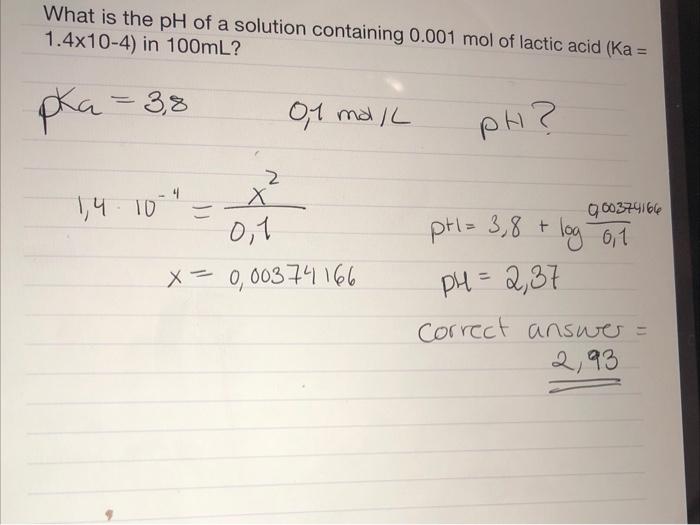 What is the pH of a solution containing 0.001 mol of lactic acid (Ka =
1.4x10-4) in 100mL?
pKa = 3,8 0,1 mol/L pH?
1,4 · 10⁻⁴ = x²/0,1
x = 0,00374166
pH = 3,8 + log 0,00374166/0,1
pH = 2,37
correct answer =
2,93